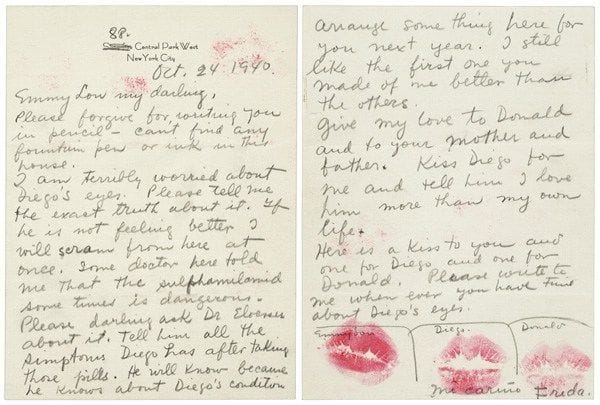 88.
Central Park West
New York City
Oct. 24 1940.
Emmy Lou my darling,
Please forgive for writing you
in pencil – can't find any
fountain pen or ink in this
house.
I am terribly worried about
Diego's eyes. Please tell me
the exact truth about it. If
he is not feeling better I
will scram from here at
once. Some doctor here told
me that the sulphamilamid
some times is dangerous.
Please darling ask Dr Eloesser
about it. Tell him all the
simptoms Diego has after taking
those pills. He will know because
he knows about Diego's condition
arrange some thing here for
you next year. I still
like the first one you
made of me better than
the others.
Give my love to Donald
and to your mother and
father. Kiss Diego for
me and tell him I love
him more than my own
life.
Here is a kiss to you and
one for Diego and one for
Donald. Please write to
me when ever you have time
about Diego's eyes.
Emmylou Diego. Donald
mi cariño Frida.